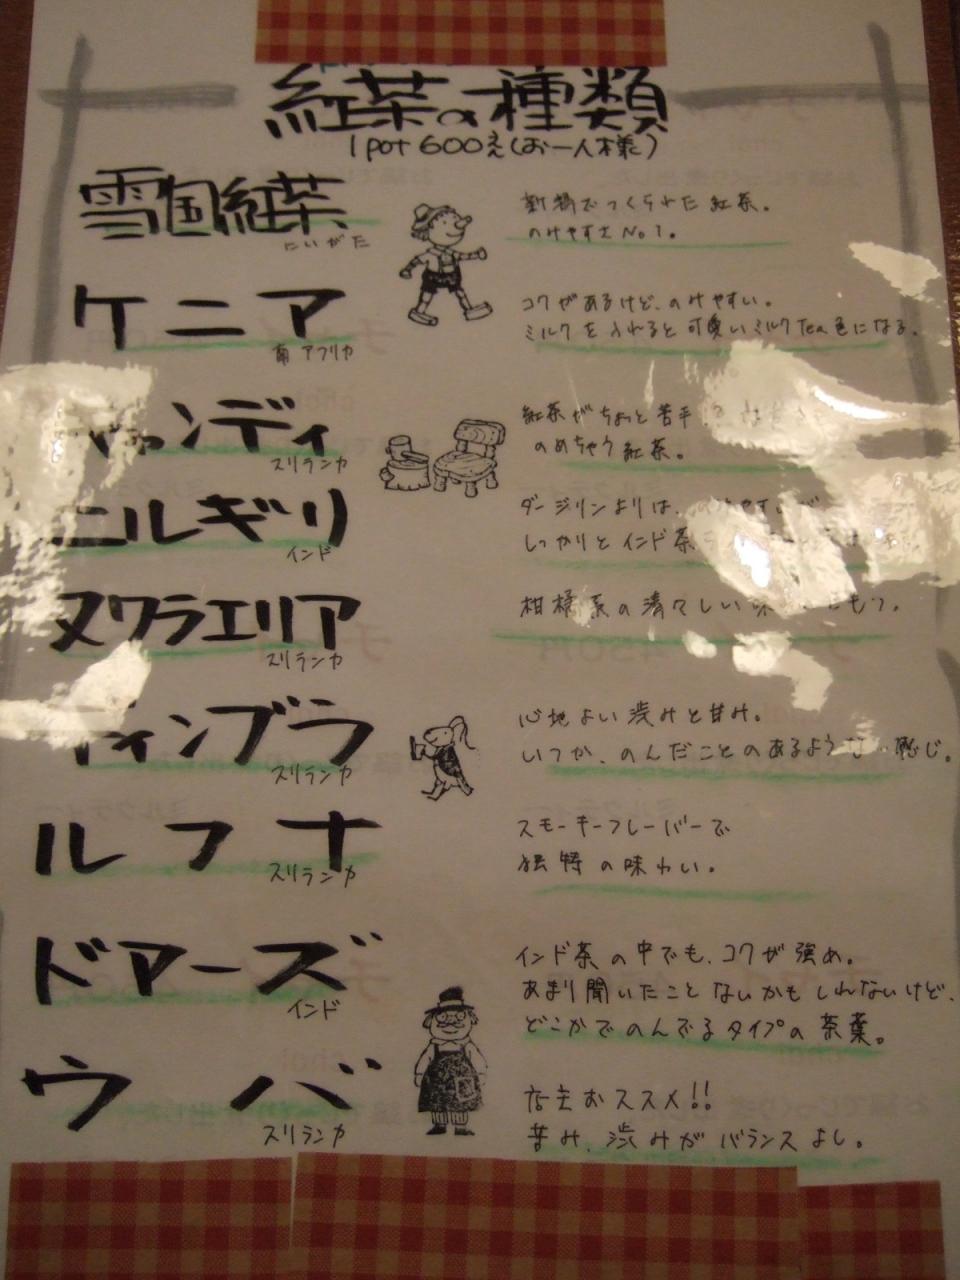 紅茶の種類
1pot 600え(お一人様)
雪国紅茶
にいがた
新潟でつくられた紅茶。
のみやすさNo1。
ケニア
南アフリカ
コクがあるけど、のみやすい。
ミルクを入れると可愛いミルクTea色になる。
キャンディ
スリランカ
紅茶がちょっと苦手
のめちゃう紅茶。
ニルギリ
インド
ダージリンよりは、のみやすいが
しっかりとインド茶
ヌワラエリア
スリランカ
柑橘系の清々しい味
もつ。
ディンブラ
スリランカ
心地よい渋みと甘み。
いつか、のんだことのあるような感じ。
ルフナ
スリランカ
スモーキーフレーバーで
独特の味わい。
ドアーズ
インド
インド茶の中でも、コクが強め。
あまり聞いたことないかもしれないけど、
どこかでのんでるタイプの茶葉。
ウバ
スリランカ
店主おススメ!!
苦み、渋みがバランスよし。